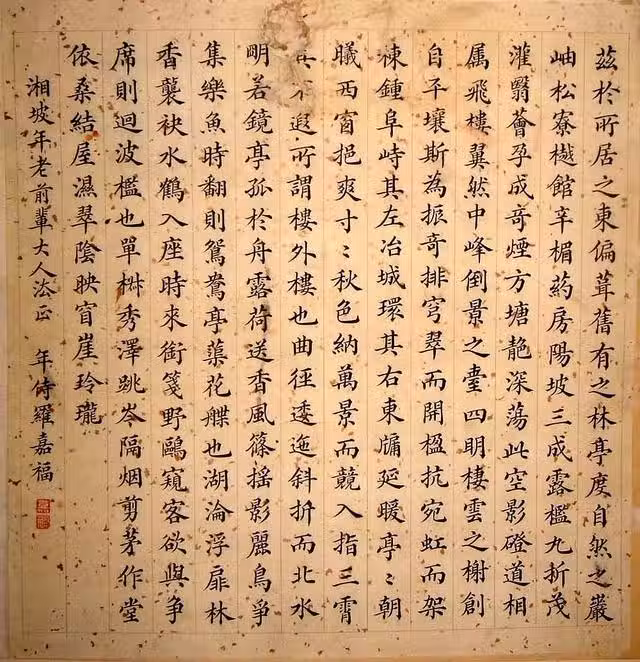 茲於所居之東偏葺舊有之林亭度自然之巖
岫松寮樾館辛楣葯房陽坡三成露檻九折茂
灌翳薈孕成奇煙方塘靘深蕩此空影磴道相
属飛樓翼然中峰倒景之臺四明棲雲之榭創
自平壤斯為振奇排穹翠而開楹抗宛虹而架
棟鍾阜峙其左冶城環其右東牖延暖亭〻朝
曦西窗挹爽寸〻秋色納萬景而競入指三霄
不遐所謂樓外樓也曲徑逶迤斜折而北水
明若鏡亭孤於舟露荷送香風篠揺影麗鳥爭
集樂魚時翻則鴛鴦亭蕖花艓也湖淪浮扉林
香襲袂水鶴入座時來銜箋野鷗窺客欲與爭
席則迴波檻也單椒秀澤跳岑隔烟剪茅作堂
依桑結屋濕翠陰映窅崖玲瓏
湘坡年老前輩大人法正 年侍羅嘉福